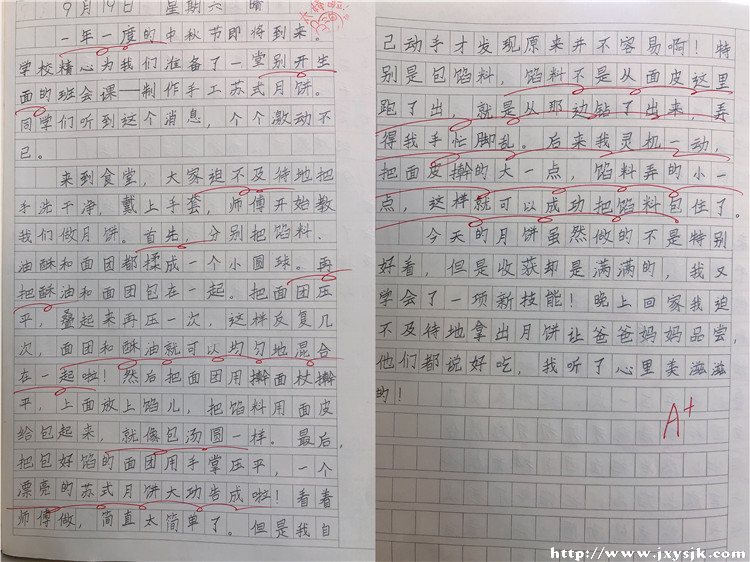 9月19日 星期六 晴
一年一度的中秋节即将到来。
学校精心为我们准备了一堂别开生
面的班会课——制作手工苏式月饼。
同学们听到这个消息,个个激动不
已。
来到食堂,大家迫不及待地把
手洗干净,戴上手套,师傅开始教
我们做月饼。首先,分别把馅料、
油酥和面团都揉成一个小圆球。再
把酥油和面团包在一起。把面团压
平,叠起来再压一次,这样反复几
次,面团和酥油就可以均匀地混合
在一起啦!然后把面团用擀面杖擀
平,上面放上馅儿,把馅料用面皮
给包起来,就像包汤圆一样。最后,
把包好馅的面团用手掌压平,一个
漂亮的苏式月饼大功告成啦!看着
师傅做,简直太简单了。但是我自
己动手才发现原来并不容易啊!特
别是包馅料,馅料不是从面皮这里
跑了出,就是从那边钻了出来,弄
得我手忙脚乱。后来我灵机一动,
把面皮擀的大一点,馅料弄的小一
点,这样就可以成功把馅料包住了。
今天的月饼虽然做的不是特别
好看,但是收获却是满满的,我又
学会了一项新技能!晚上回家我迫
不及待地拿出月饼让爸爸妈妈品尝,
他们都说好吃,我听了心里美滋滋
的!
A+
http://www.jxysjk.com/